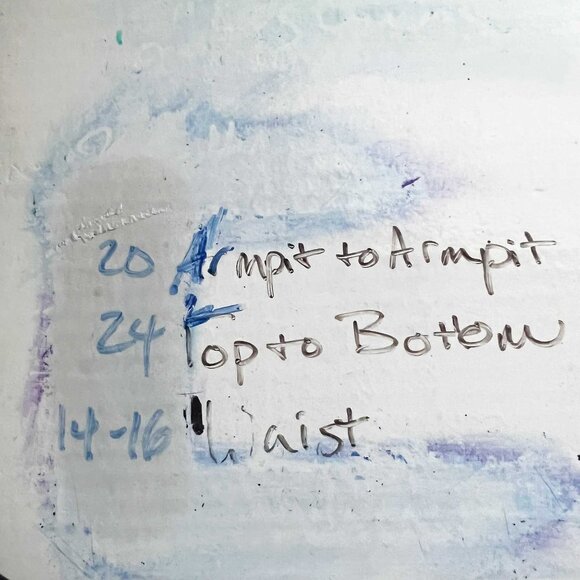 20 Armpit to Armpit
24 Top to Bottom
14-16 Waist